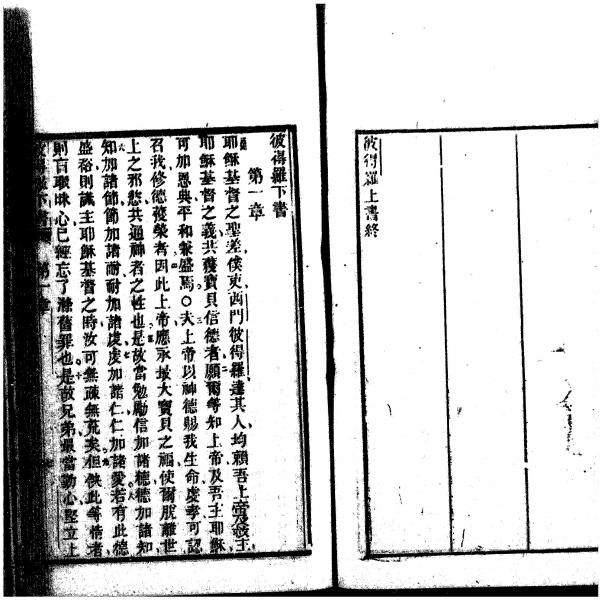 彼得羅上書終
彼得羅下書
第一章
耶穌基督之聖差僕吏西門彼得羅達其人均賴吾上帝及救主
耶穌基督之義共獲寶貝信德者願爾等知上帝及吾主耶穌
可加恩典平和兼盛焉○夫上帝以神德賜我生命虔孝可認
召我修德獲榮者因此上帝應承最大寶貝之福使爾脫離世
上之邪慾共通神者之性也是故當勉勵信加諸德德加諸知
知加諸節節加諸耐耐加諸虔虔加諸仁仁加諸愛若有此德
盛裕則識主耶穌基督之時汝可無疎無荒矣但缺此等情者
則盲眼昧心已經忘了滌舊罪也是故兄弟最當勤心堅立上
彼得羅下書 第一章